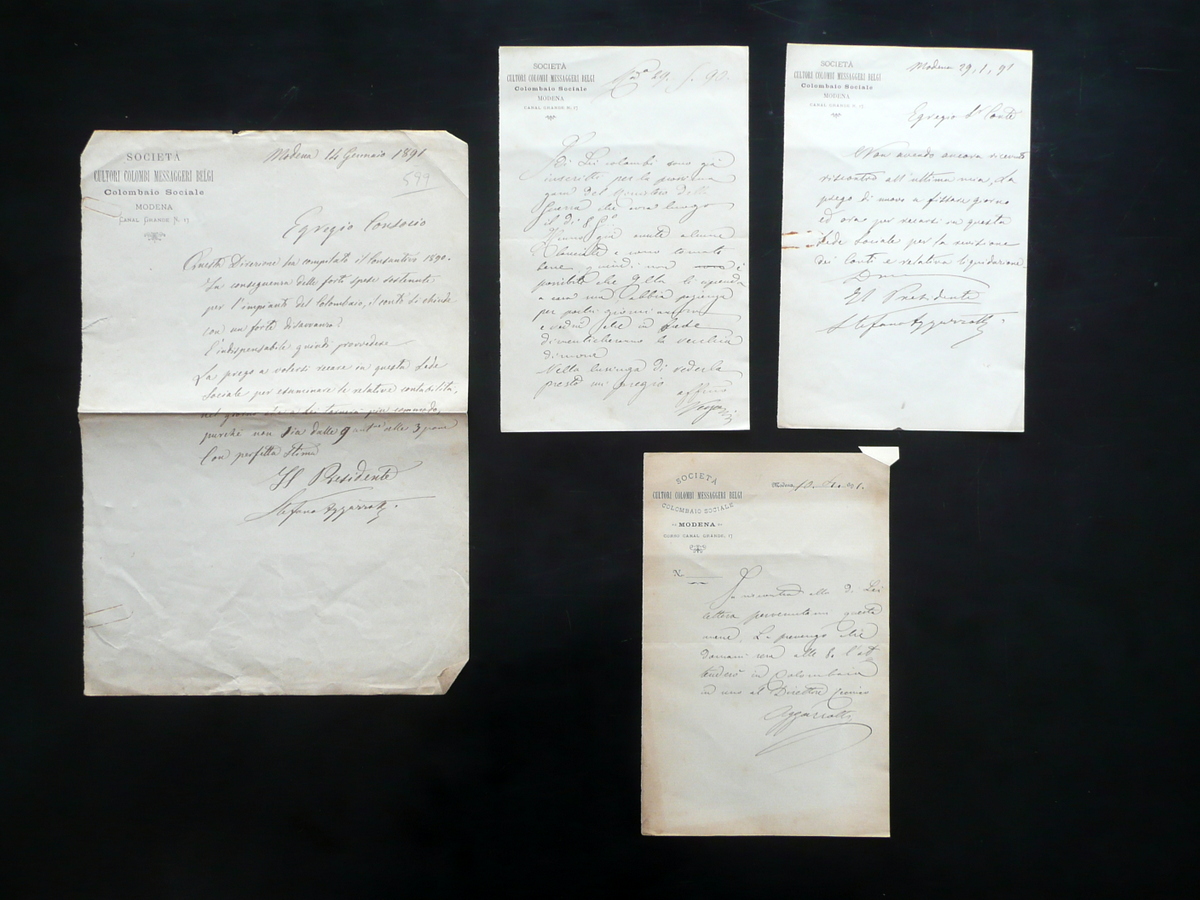 SOCIETÀ
CULTORI COLOMBI MESSAGGERI BELGI
Colombaio Sociale
MODENA
CANAL GRANDE N. 17
Modena 14 Gennaio 1891
599
Egregio Consocio
Questa Direzione ha compilato il Consuntivo 1890.
In conseguenza delle forti spese sostenute
per l'impianto del Colombaio, il conto si chiude
con un forte disavanzo.
È indispensabile quindi provvedere
La prego a volersi recare in questa Sede
Sociale per esaminare la relativa contabilità,
nel giorno che a Lei tornerà più commodo,
purchè non sia dalle 9 ant. alle 3 pom.
Con perfetta stima
Il Presidente
Stefano Aggazzotti
SOCIETÀ
CULTORI COLOMBI MESSAGGERI BELGI
Colombaio Sociale
MODENA
CANAL GRANDE N. 17
29.
Lei colombi sono già
inscritti per la prossima
gara del Ministero della
Guerra che avrà luogo
il dì
già avute alcune
bene quindi non è
possibile che Ella li riprenda
a casa ma abbia pazienza
per pochi giorni ancora
e vedrà che in
dimenticheranno la vecchia
dimora
Nella lusinga di vederla
presto mi pregio
SOCIETÀ
CULTORI COLOMBI MESSAGGERI BELGI
Colombaio Sociale
MODENA
CANAL GRANDE N. 17
Modena 29,1,91
Egregio Sr. Conte
Non avendo ancora ricevuto
riscontro all'ultima mia, La
prego di nuovo a fissare giorno
ed ora per recarsi in questa
Sede Sociale per la revisione
dei Conti e relativa liquidazione
Il Presidente
Stefano Aggazzotti
SOCIETÀ
CULTORI COLOMBI MESSAGGERI BELGI
COLOMBAIO SOCIALE
MODENA
CORSO CANAL GRANDE, 17
Modena,
N.
In alla di Lei
lettera pervenutami questa
mane, La prevengo che
domani sera alle 8 l'at
tenderò in Colombaia
ad uno al Direttore
Aggazzotti